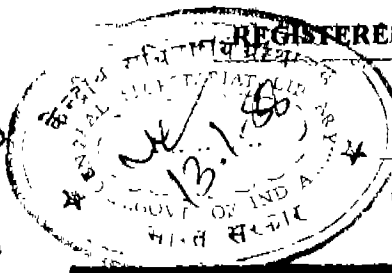 REGISTERE
केन्द्रीय सचिवालय
CENTRAL SECRETARIAT LIBRARY
13.1.88
GOVT OF INDIA
भारत सरकार